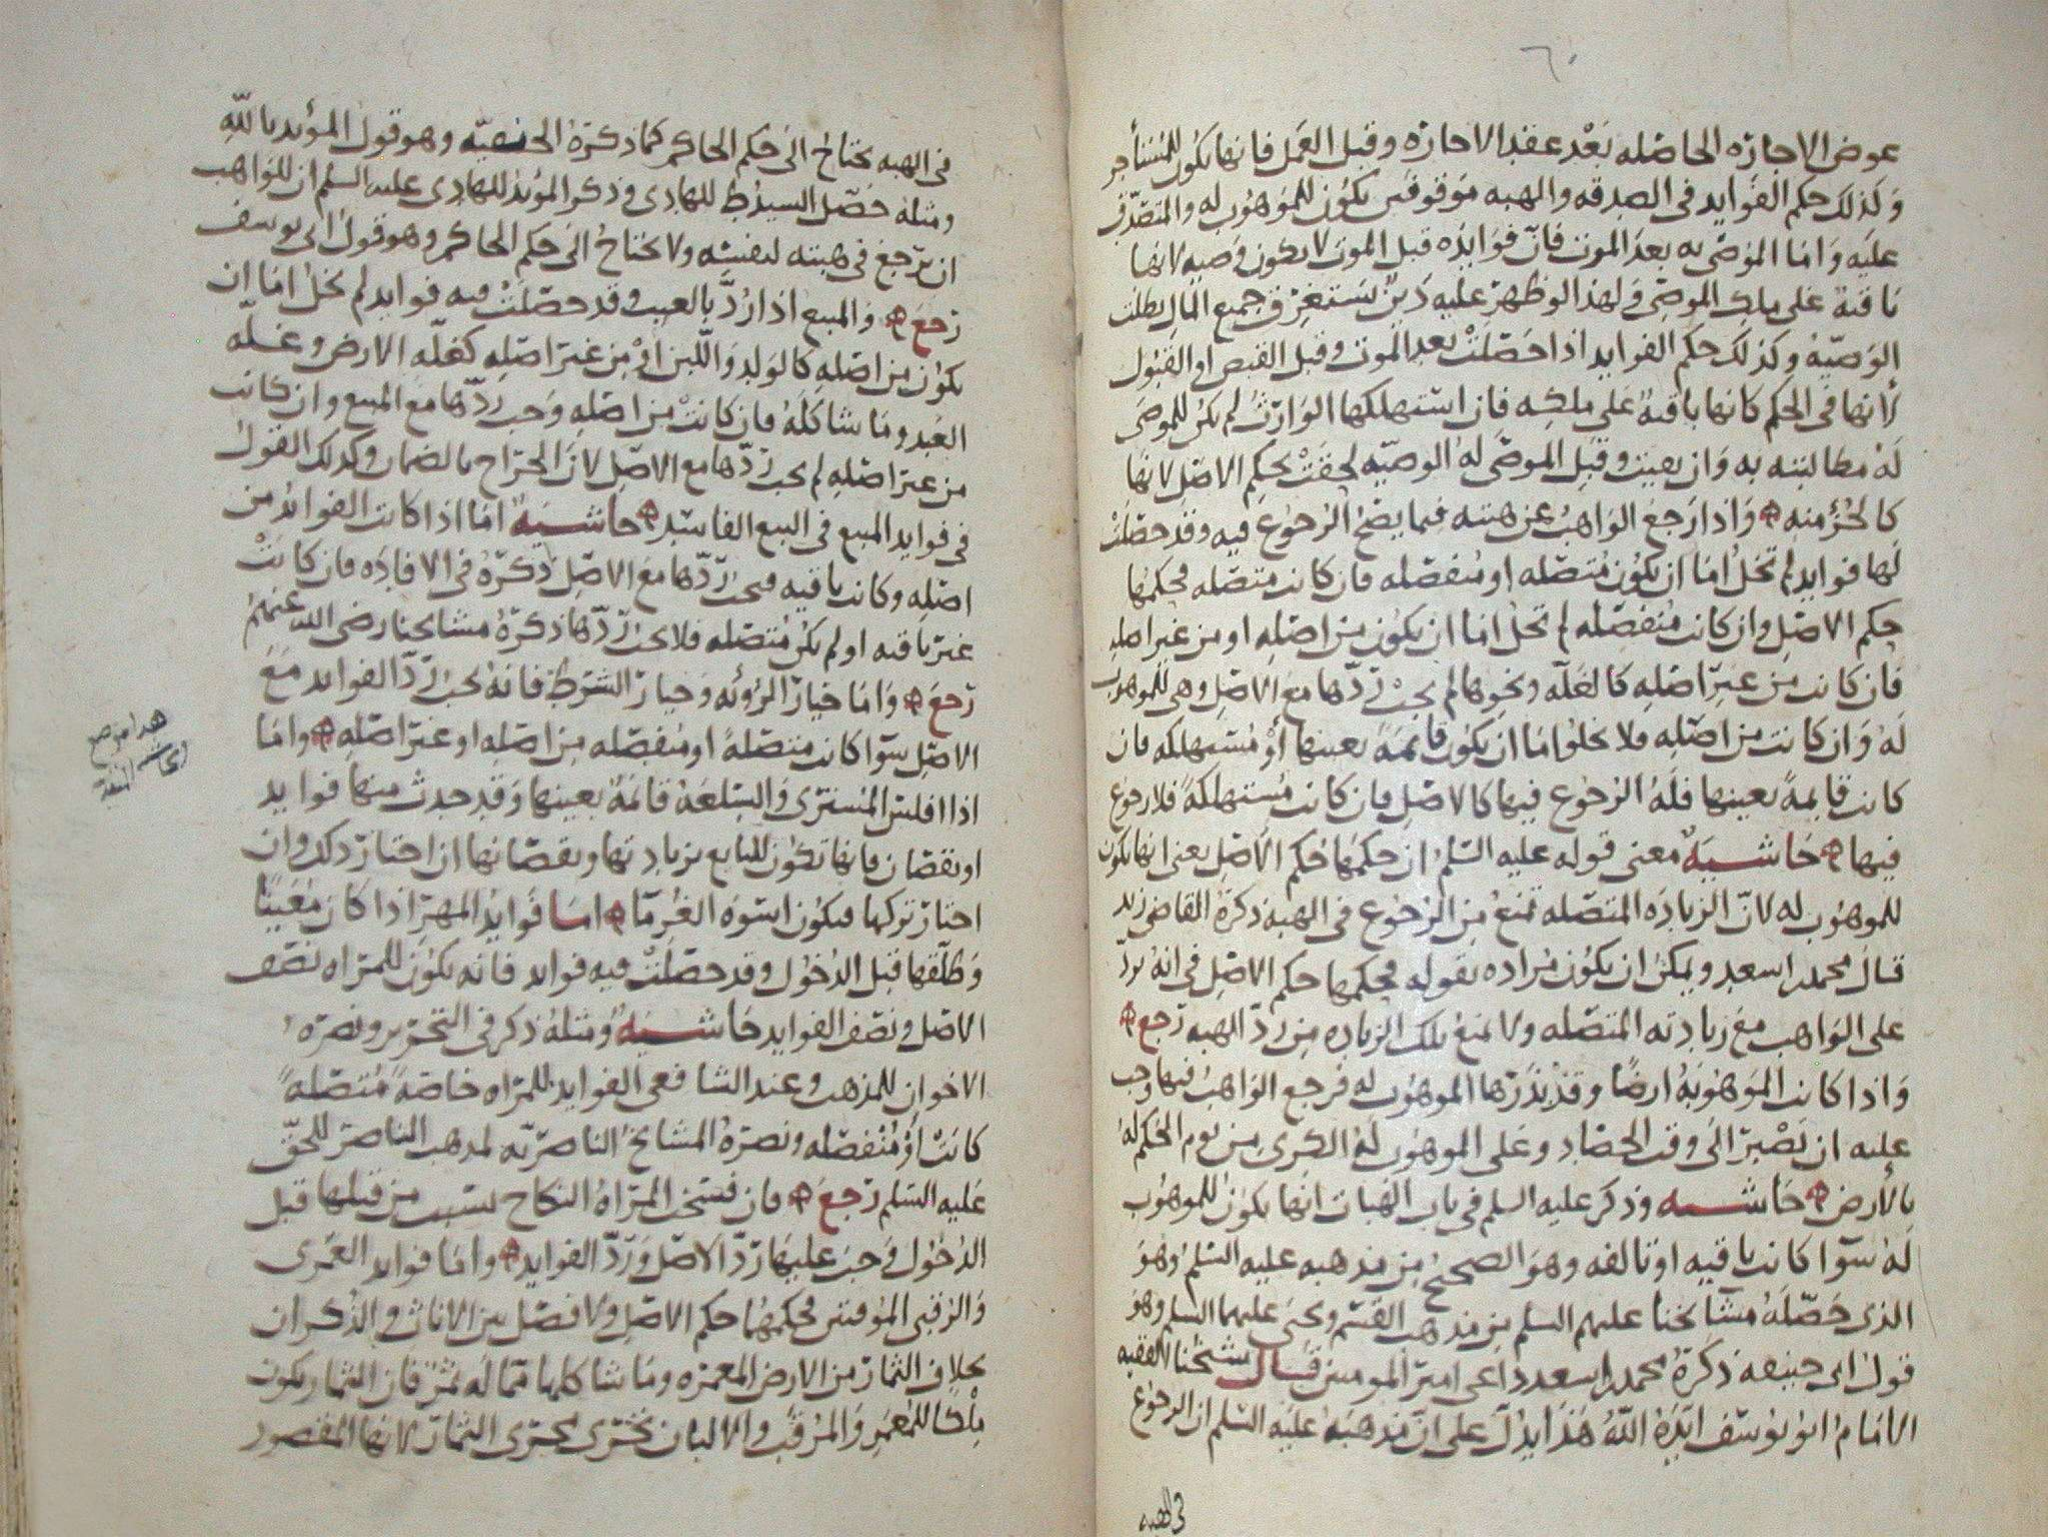 ٦٠
عوض الاجاره الحاصله بَعْد عقد الاجاره وقبل العَمل فانها يكون للمُستأجر
وَكَذلك حكم الفوَايد في الصدقه والهبه مَوقوفتين يكوُن للمَوهوُب له والمتصَدّق
عليَه وَامَا الموُصَى به بعدَ الموت فانّ فوَايدَه قبل الموت لا يكون وَصيه لانها
بَاقية على ملك الموصِي وَلهذا لو ظهَرَ عليه دَينٌ يَستغرِق جميع المال بطلت
الوَصيّه وكذلك حكم الفوايد اذا حَصَلَتْ بعد الموت وقبل القبض او القبُول
لأنها في الحكم كانها باقيةٌ على ملكِه فان استهلكها الوَارثُ لم يكن للموصَى
لَهُ مطالبته به وَان بقيت وقبل الموصَى لهُ الوصيّه لحقَتْ بحكم الاصل لانها
كالجُزْء منه وَاذا رَجعَ الوَاهبُ عن هبته فيما يصحُ الرُجوُع فيه وقد حصَلَتْ
لها فوايد لم تخلُ امَا ان يكوُن مُتصله او مُنفصله فان كانت متصله فحكمُهَا
حكم الاصْلِ وان كانت مُنفصِله لم تخلُ امَا ان يكوُن من اصْلِهِ او من غير اصله
فان كانت من غير اصْلِه كالغلّه ونحوها لم يجبْ رَدّها معَ الاصْلِ وهي للموهوُب
لهُ وَان كانت من اصْلِه فلا يخلوُ امَا ان يكوُن قايمَةً بعينها أوْ مُستهلكه فان
كانت قايمةً بعينها فلَهُ الرُجوُع فيها كالاصْلِ فان كانت مُستهلكةً فلا رجوُع
فيها حَاشيَهٌ معنى قوله عليه السّلمُ ان حكمَهَا حُكم الاصْلِ يعني انها يكون
للموهوُب له لانّ الزيادَه المتصله تمنعُ من الرُجوُع في الهبه ذكرَهُ القاضي زيد
قال محمد بن اسعد ويمكنُ ان يكوُن مُرَاده بقوله فحكمها حكم الاصْلِ في انهُ يردّ
على الوَاهب معَ زيادته المتصله ولا تمنع تلك الزياده من رَدّ الهبه رَجعَ
وَاذا كانت المَوهوُبَهُ ارضًا وقدْ بَذَرَهَا الموهوُب له فرجع الوَاهبُ فيها وجب
عليه ان يَصْبرَ الىَ وقت الحَصَاد وعَلى الموهوُب لهُ الكرى من يَوم الحُكم لهُ
بالأرض حَاشيه وذكر عليه السلم في باب الهبات انها يكوُن للموهوُب
لهُ سَوَا كانت باقيه او تالفه وهوَ الصحيح من مذهبه عليه السّلم وَهوَ
الذي حَصّلهُ مشايخنا عليهم السلم من مذهب القسم ويحيى عليهما السلم وهوَ
قول ابي حنيفه ذكرَهُ محمد بن اسعد داعي امير المومنين قال شيخُنا الفقيه
الامَام ابوُ يوُسف ايّدَهُ اللّهُ هَذا يدلّ على انّ مَذهبَهُ عليَه السّلم ان الرجوُع
في الهبه
في الهبه يحتاجُ الىَ حُكم الحاكم كما ذكرَهُ الحنفيّه وهو قول المؤيد باللّهِ
ومثله حَصّل السيدُ ط للهادي وذكر المؤيد للهادى عليه السلم ان للوَاهب
ان يرجعَ في هبته لنفسِه ولا يحتاجُ الىَ حكم الحاكم وهو قول ابي يوسف
رَجعَ وَالمبيع اذا رُدَّ بالعيب وقد حصَلَتْ فيه فوايد لم يخلُ امَا ان
يكوُن من اصْلِهِ كالوَلدِ وَاللّبن اوْ من غير اصْلِهِ كغلّه الارض وغلّه
العَبدِ ومَا شَاكلهُ فان كانَتْ من اصْلِهِ وَجبَ رَدّهَا معَ المبيع وان كانت
من غير اصْلِهِ لم يجب رَدّهَا مع الاصْلِ لانّ الخرَاج بالضمان وكذلك القول
في فوايد المبيع في البيع الفاسِد حاشيَه امَا اذا كانت الفوايدُ من
اصْلِهِ وكانت باقيه فيجب رَدّها معَ الاصْلِ ذكرَهُ في الافادَه فان كانَتْ
غير باقيه او لم يكن مُتصله فلا يجبُ رَدّها ذكرَهُ مشايخنا رضي الله عنهمُ
رَجعَ وَامَا خيَار الرُؤيه وَخيار الشرط فانهُ يجبُ رَدّ الفوايد مَعَ
الاصْلِ سَوَا كانت متصلهً او مُنفصله من اصْلِهِ او غير اصْلِهِ وامَا
اذا افلس المُشترى وَالسِلعَةُ قايمةٌ بعينها وَقد حدثَ منها فوايد
او نقصَان فانها تكون للبايع بزيادتها ونقصَانها ان اختار ذلك وان
اختار تركها فيكون اسْوَه الغُرمَا امَا فَوايدُ المهرِ اذا كان مُعَيّنًا
وَطلّقها قبل الدُخوُل وقد حصَلَتْ فيه فوايد فانه يكوُن للمرَاه نصْف
الاصْلِ ونصْف الفوايد حَاشيَهٌ ومثلهُ ذكر في التحرير ونصَرَهُ
الاخوان للمذهب وعند الشافعي الفوايد للمرَاه خاصّةً مُتصلةً
كانَتْ أوْ مُنفصله ونصَرَهُ المشايخُ الناصريّه لمذهب الناصر للحقّ
عَليه السّلم رَجعَ فان فسَخت المرَاةُ النكاح بسَبب من قبلها قبل
الدُخوُل وَجبَ عليهَا رَدّ الاصْل وَرَدّ الفوايد وامَا فوايد العُمرى
وَالرُقبى الموُقتتين فحكمهُما حكم الاصْل ولا فصْل بين الاناث والذُكران
بخلاف الثمار من الارض المعمَره ومَا شاكلها مما لَه ثمرٌ فان الثمار يكون
ملكًا للمُعمَرِ وَالمُرقَب والالبان تَجْرى مجرَى الثمار لانها المقصود
هذا موضع